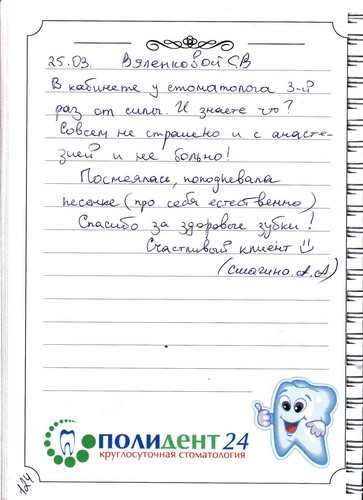 25.03. Вяленковой С.В
В кабинете у стоматолога 3-й
раз от силы. И знаете что?
Совсем не страшно и с анасте-
зией и не больно!
Посмеялась, поподпевала
песенке (про себя естественно)
Спасибо за здоровые зубки!
Счастливый клиент
(Смагина. А.А)
ПОЛИДЕНТ 24
круглосуточная стоматология
124